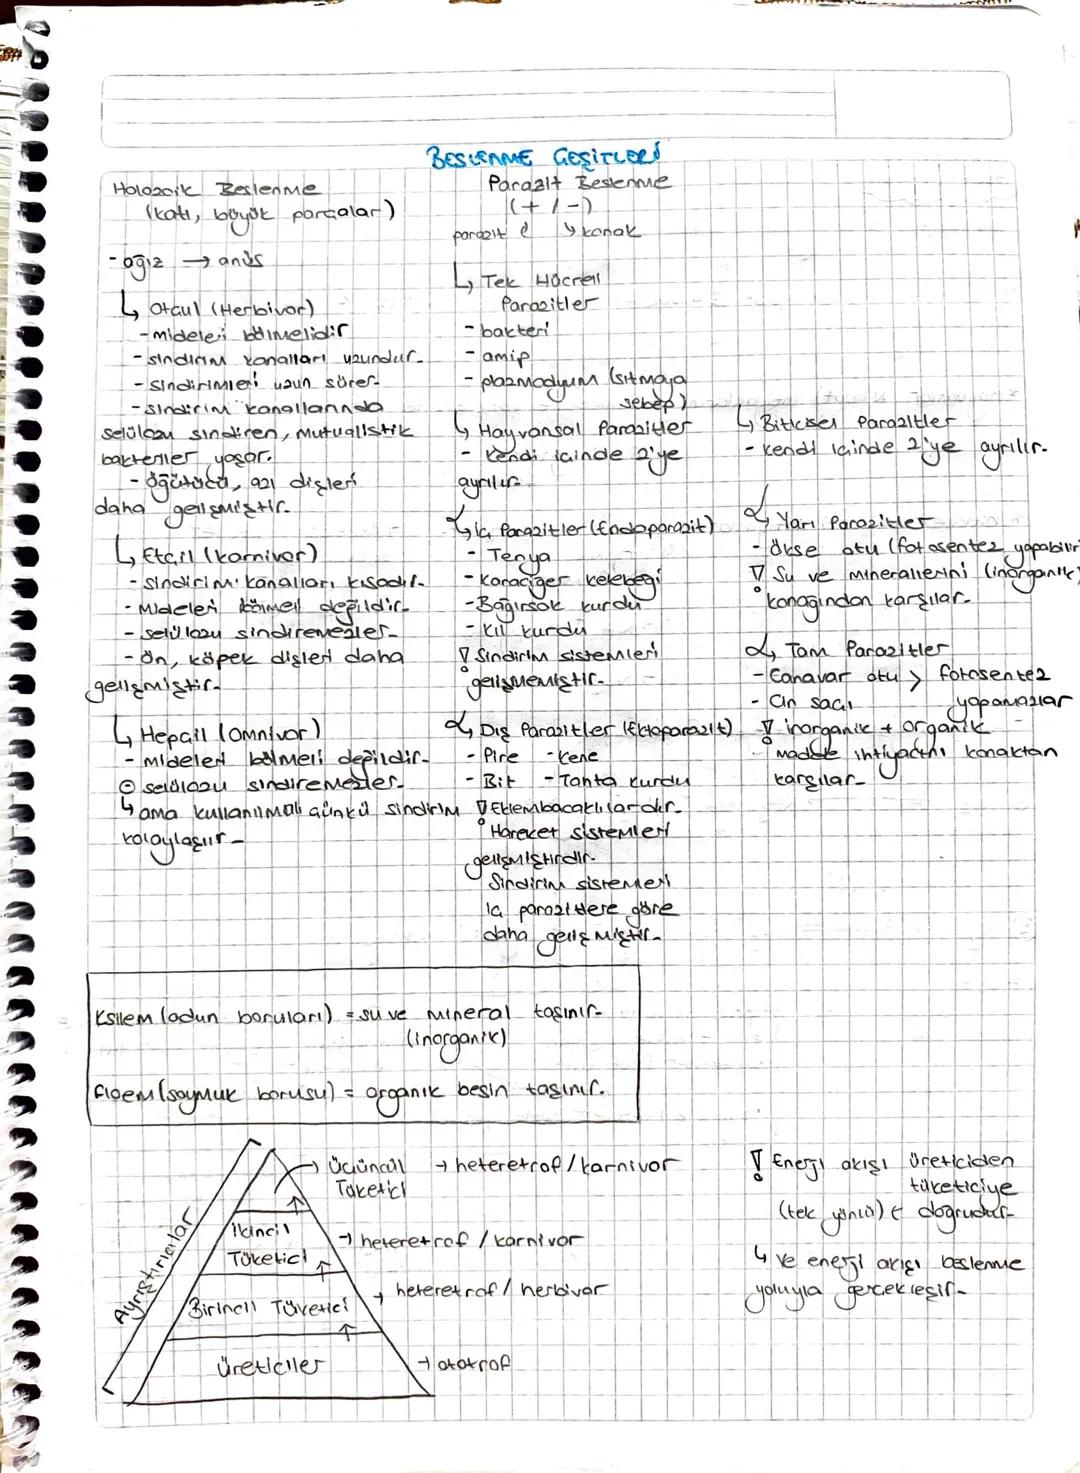 BESLENME ÇEŞİTLERİ
Holozoik Beslenme
(katı, büyük parçalar)
- ağız → anüs
↳ Otçul (Herbivor)
- mideleri bölmelidir
- sindirim kanalları uzundur.
- sindirimleri uzun sürer.
- sindirim kanallarında
selülozu sindiren, mutualistik
bakteriler yaşar.
- öğütücü, azı dişleri
daha gelişmiştir.
↳ Etçil (karnivor)
- sindirim kanalları kısadır.
- Mideleri bölmeli değildir.
- selülozu sindiremezler.
- Ön, köpek dişleri daha
gelişmiştir.
↳ Hepçil (Omnivor)
- mideleri bölmeli değildir.
selülozu sindiremezler.
↳ ama kullanılmalı çünkü sindirim
kolaylaşır.
Parazit Beslenme
(+ / -)
parazit konak
↳ Tek Hücreli
Parazitler
- bakteri
- amip
- plazmodyum (sıtmaya
sebep)
↳ Hayvansal Parazitler
- Kendi içinde 2'ye
ayrılır.
↳ İç Parazitler (Endoparazit)
- Tenya
- Karaciğer kelebeği
- Bağırsak kurdu
- Kıl kurdu
! Sindirim sistemleri
gelişmemiştir.
↳ Dış Parazitler (Ektoparazit)
- Pire - Kene
- Bit - Tahta kurdu
! Eklembacaklılardır.
Hareket sistemleri
gelişmiştirdir.
Sindirim sistemleri
iç parazitlere göre
daha gelişmiştir.
↳ Bitkisel Parazitler
- kendi içinde 2'ye ayrılır.
↳ Yarı Parazitler
- Ökse otu (fotosentez yapabilir
! Su ve minerallerini (inorganik)
konağından karşılar.
↳ Tam Parazitler
- Canavar otu > fotosentez
- Cin saçı yapamazlar
! inorganik + organik
madde ihtiyacını konaktan
karşılar.
Ksilem (odun boruları) = su ve mineral taşınır.
(inorganik)
Floem (soymuk borusu) = organik besin taşınır.
Ayrıştırıcılar
Üçüncül → heteretrof / karnivor
Tüketici
İkincil
Tüketici → heteretrof / karnivor
Birincil Tüketici → heteretrof / herbivor
Üreticiler → ototrof
! Enerji akışı üreticiden
tüketiciye
(tek yönlü) ← doğrudur.
↳ ve enerji akışı beslenme
yoluyla gerçekleşir.